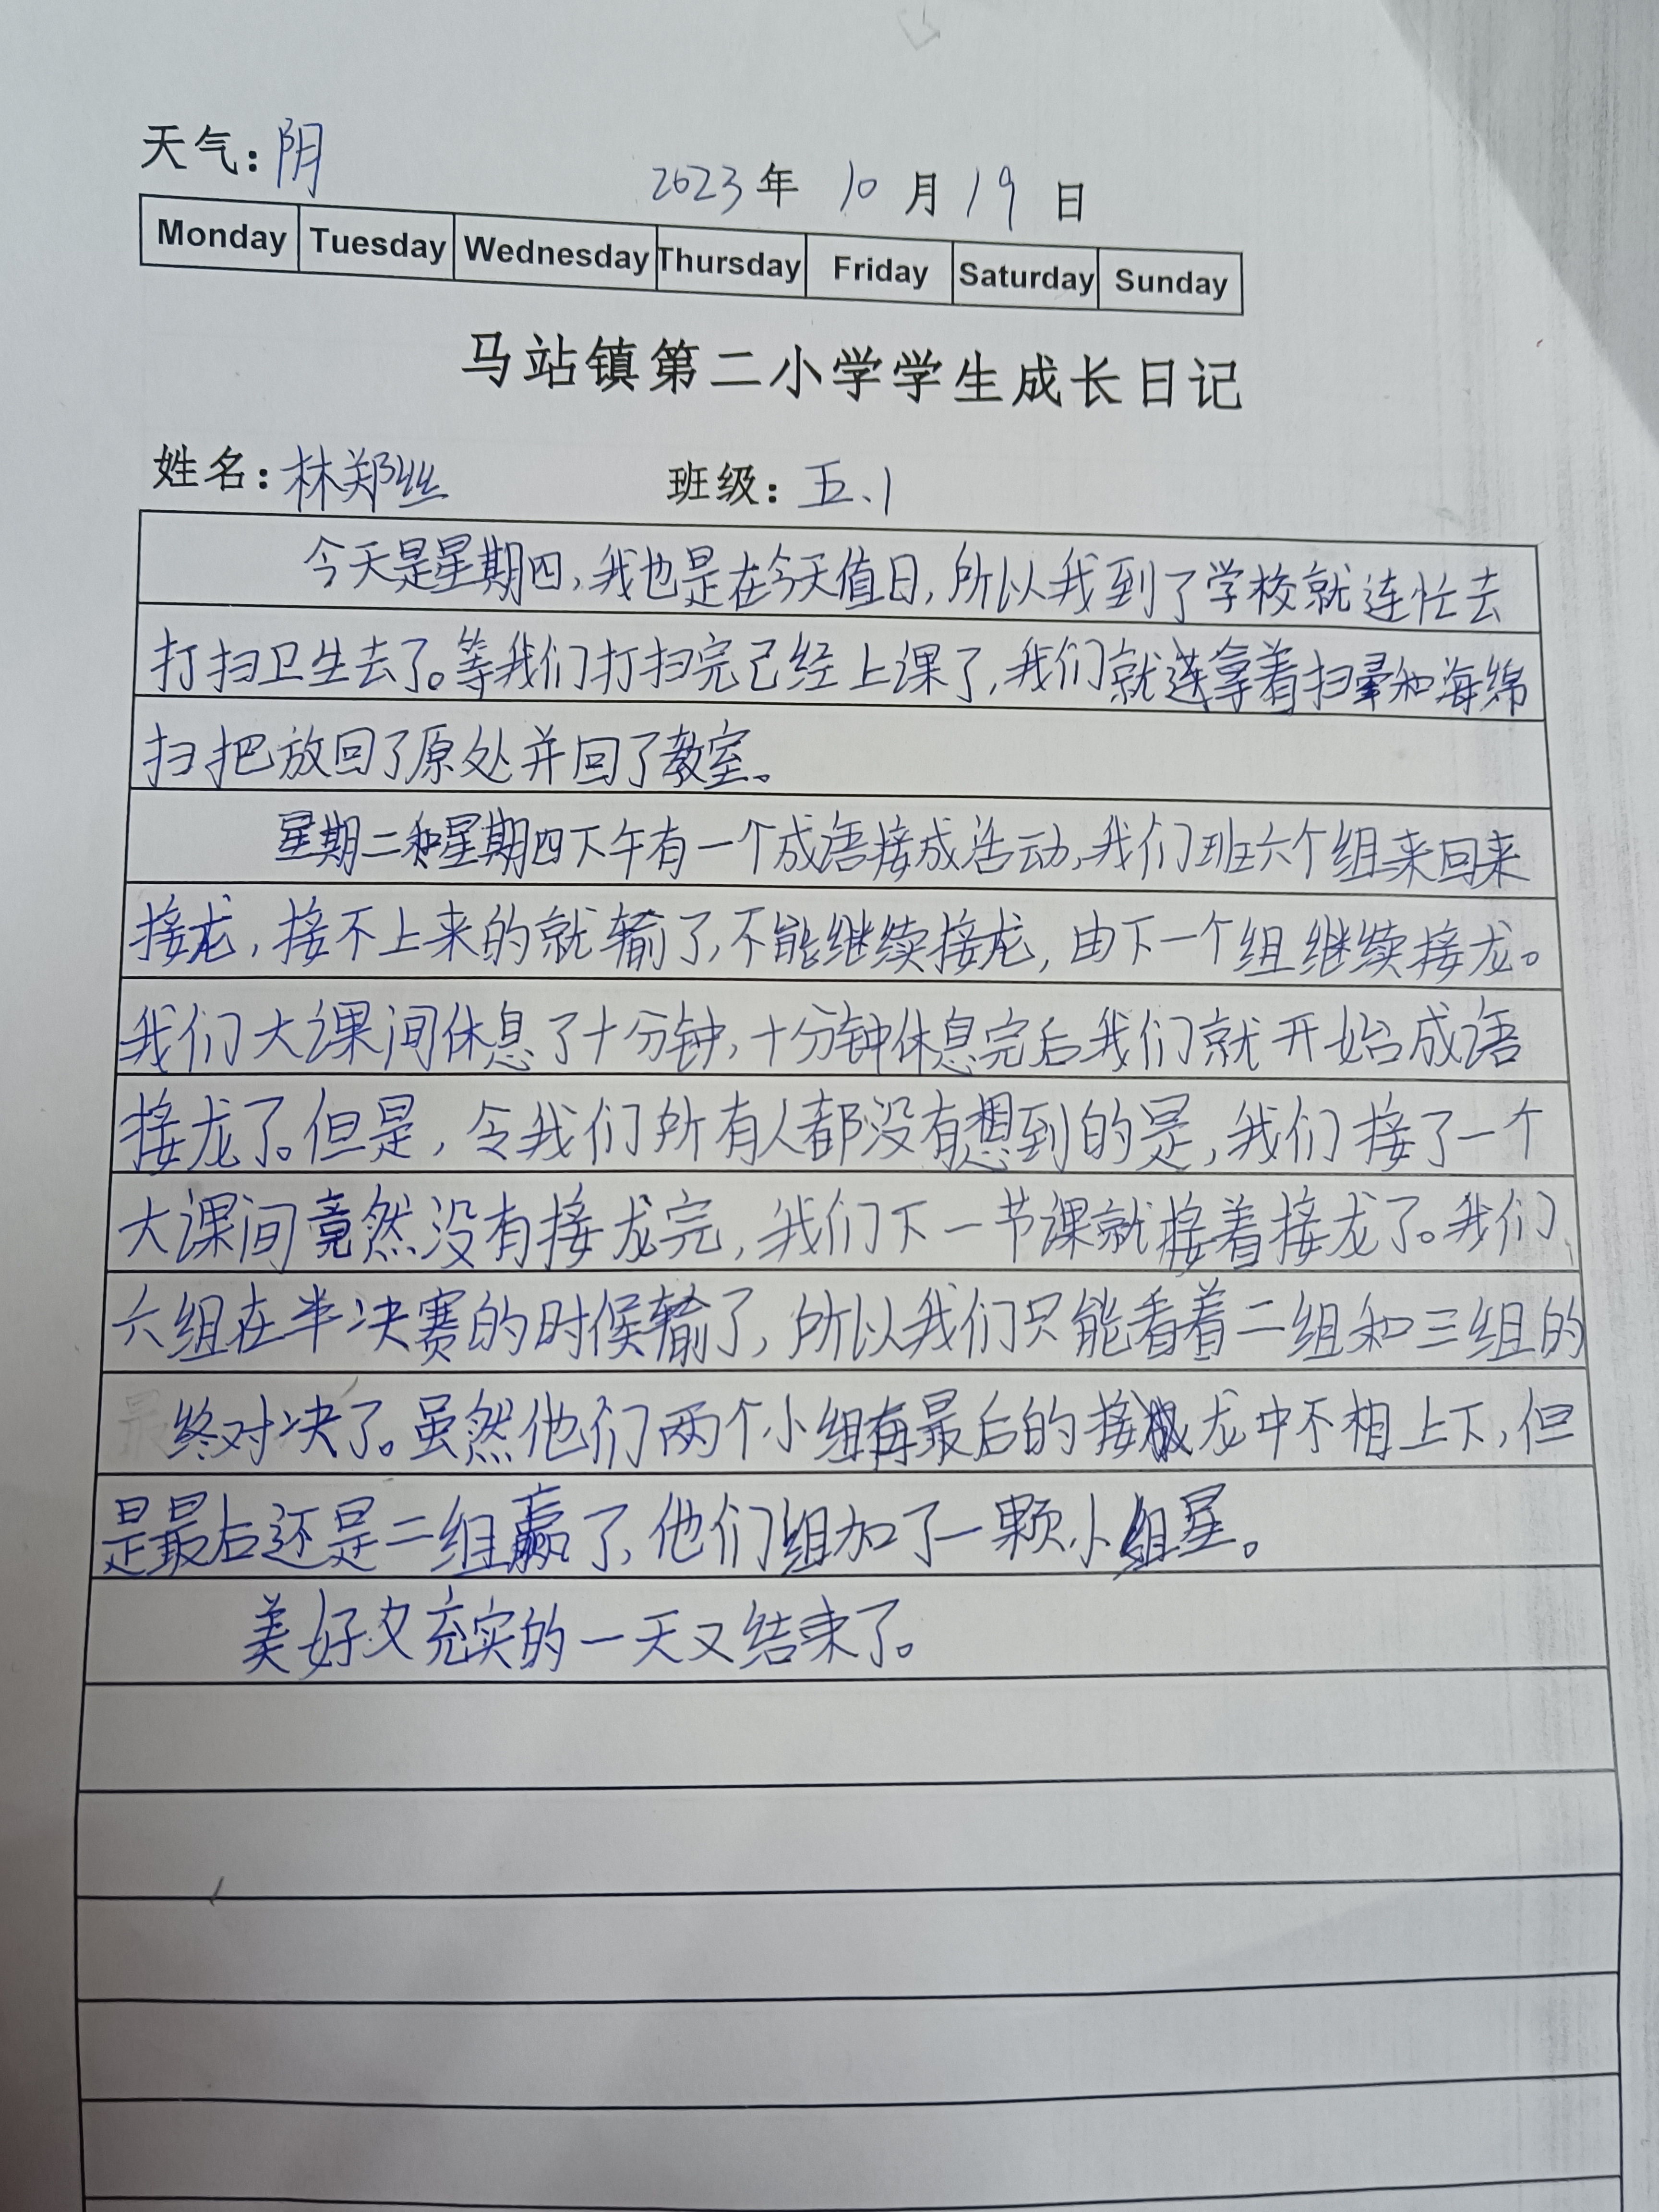 天气：阴
2023年 10月19日
Monday Tuesday Wednesday Thursday Friday Saturday Sunday
马站镇第二小学学生成长日记
姓名：林郑丝 班级：五、1
今天是星期四，我也是在今天值日，所以我到了学校就连忙去
打扫卫生去了。等我们打扫完已经上课了，我们就连拿着扫和海绵
扫把放回了原处并回了教室。
星期二和星期四下午有一个成语接成活动，我们班六个组来回来
接龙，接不上来的就输了，不能继续接龙，由下一个组继续接龙。
我们大课间休息了十分钟，十分钟休息完后我们就开始成语
接龙了。但是，令我们所有人都没有想到的是，我们接了一个
大课间竟然没有接龙完，我们下一节课就接着接龙了。我们
六组在半决赛的时候输了，所以我们只能看着二组和三组的
最终对决了。虽然他们两个小组再最后的接龙中不相上下，但
是最后还是二组赢了，他们组加了一颗小组星。
美好又充实的一天又结束了。